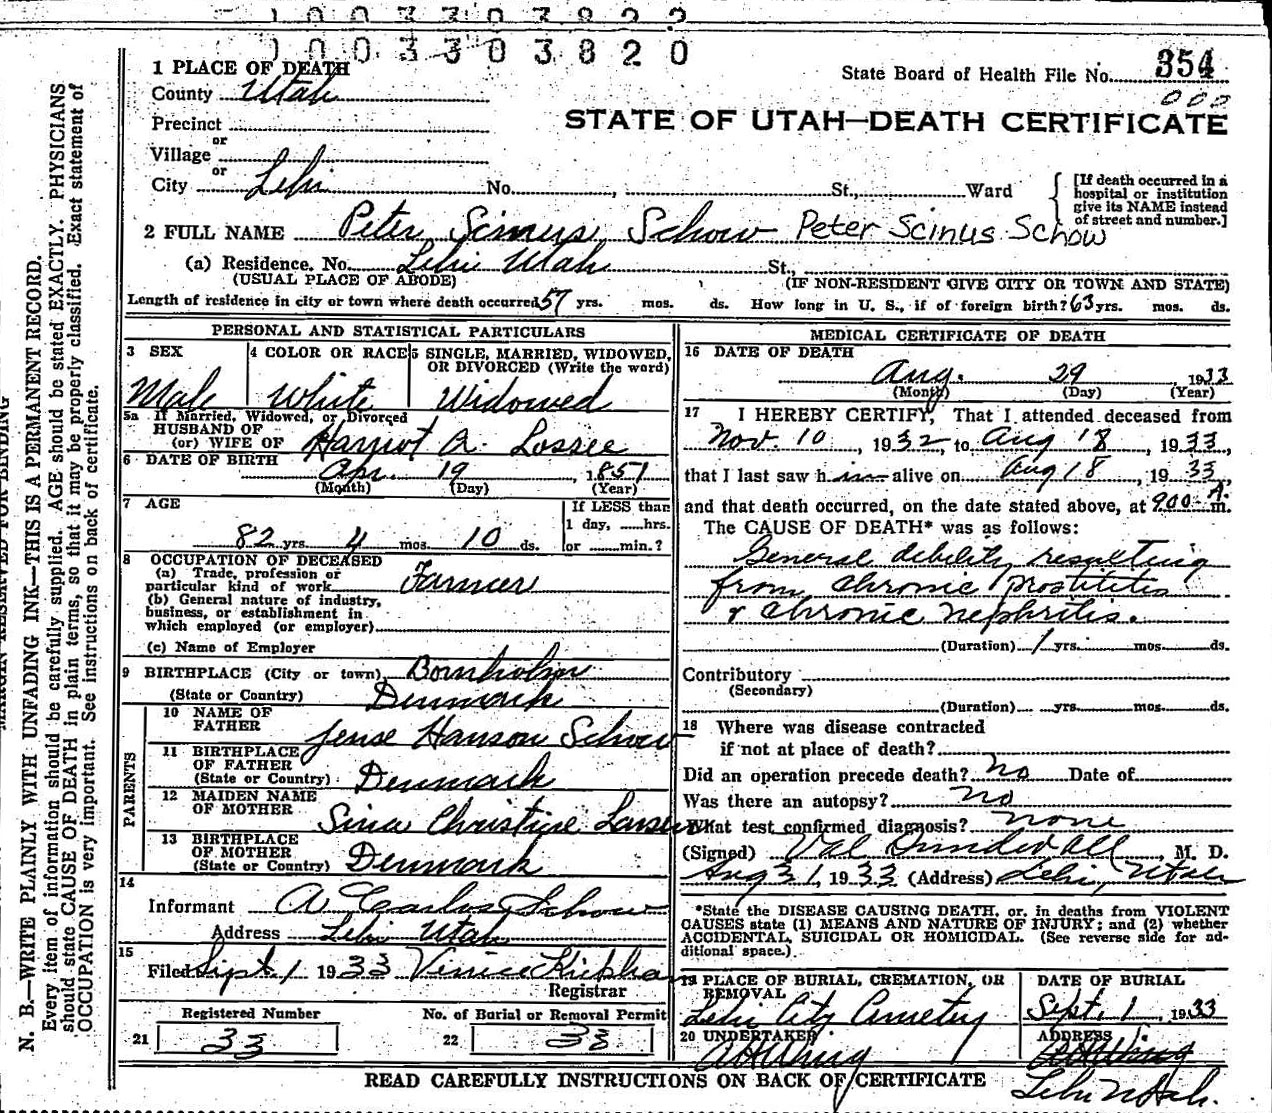 1 0 0 3 3 0 3 8 2 0
1 PLACE OF DEATH
State Board of Health File No. 354
County Utah
000
STATE OF UTAH—DEATH CERTIFICATE
Precinct
or
Village
or
City Lehi No. , St., Ward
[If death occurred in a hospital or institution give its NAME instead of street and number.]
2 FULL NAME Peter Scinus Schow Peter Scinus Schow
(a) Residence. No. Lehi Utah St.,
(USUAL PLACE OF ABODE) (IF NON-RESIDENT GIVE CITY OR TOWN AND STATE)
Length of residence in city or town where death occurred 57 yrs. mos. ds. How long in U. S., if of foreign birth? 63 yrs. mos. ds.
PERSONAL AND STATISTICAL PARTICULARS
3 SEX
Male
4 COLOR OR RACE
White
5 SINGLE, MARRIED, WIDOWED,
OR DIVORCED (Write the word)
Widowed
5a If Married, Widowed, or Divorced
HUSBAND OF
(or) WIFE OF Harriot A. Lossee
6 DATE OF BIRTH
Apr. 19, 1851
(Month) (Day) (Year)
7 AGE
82 yrs. 4 mos. 10 ds.
If LESS than
1 day, ......hrs.
or ........min.?
8 OCCUPATION OF DECEASED
(a) Trade, profession or
particular kind of work Farmer
(b) General nature of industry,
business, or establishment in
which employed (or employer)
(c) Name of Employer
9 BIRTHPLACE (City or town) Bornholm
(State or Country) Denmark
PARENTS
10 NAME OF
FATHER Jense Hanson Schow
11 BIRTHPLACE
OF FATHER
(State or Country) Denmark
12 MAIDEN NAME
OF MOTHER Sina Christine Larsen
13 BIRTHPLACE
OF MOTHER
(State or Country) Denmark
14
Informant A Carlos Schow
Address Lehi Utah
15
Filed Sept. 1 1933
Registrar
Registered Number
21 33
No. of Burial or Removal Permit
22 33
MEDICAL CERTIFICATE OF DEATH
16 DATE OF DEATH
Aug. 29 1933
(Month) (Day) (Year)
17 I HEREBY CERTIFY, That I attended deceased from
Nov. 10, 1932, to Aug 18, 1933,
that I last saw him alive on Aug 18, 1933,
and that death occurred, on the date stated above, at 900 A. m.
The CAUSE OF DEATH* was as follows:
General debility resulting
from chronic prostitis
& chronic nephritis.
(Duration) 1 yrs. mos. ds.
Contributory
(Secondary)
(Duration) yrs. mos. ds.
18 Where was disease contracted
if not at place of death?
Did an operation precede death? no Date of
Was there an autopsy? no
What test confirmed diagnosis? none
(Signed) Val Sundwall, M. D.
Aug 31, 1933 (Address) Lehi, Utah
*State the DISEASE CAUSING DEATH, or, in deaths from VIOLENT
CAUSES state (1) MEANS AND NATURE OF INJURY; and (2) whether
ACCIDENTAL, SUICIDAL OR HOMICIDAL. (See reverse side for ad-
ditional space.)
19 PLACE OF BURIAL, CREMATION, OR
REMOVAL
Lehi City Cemetery
DATE OF BURIAL
Sept. 1, 1933
20 UNDERTAKER
ADDRESS
Lehi Utah.
READ CAREFULLY INSTRUCTIONS ON BACK OF CERTIFICATE
MARGIN RESERVED FOR BINDING
N. B.—WRITE PLAINLY WITH UNFADING INK—THIS IS A PERMANENT RECORD.
Every item of information should be carefully supplied. AGE should be stated EXACTLY. PHYSICIANS
should state CAUSE OF DEATH in plain terms, so that it may be properly classified. Exact statement of
OCCUPATION is very important. See instructions on back of certificate.